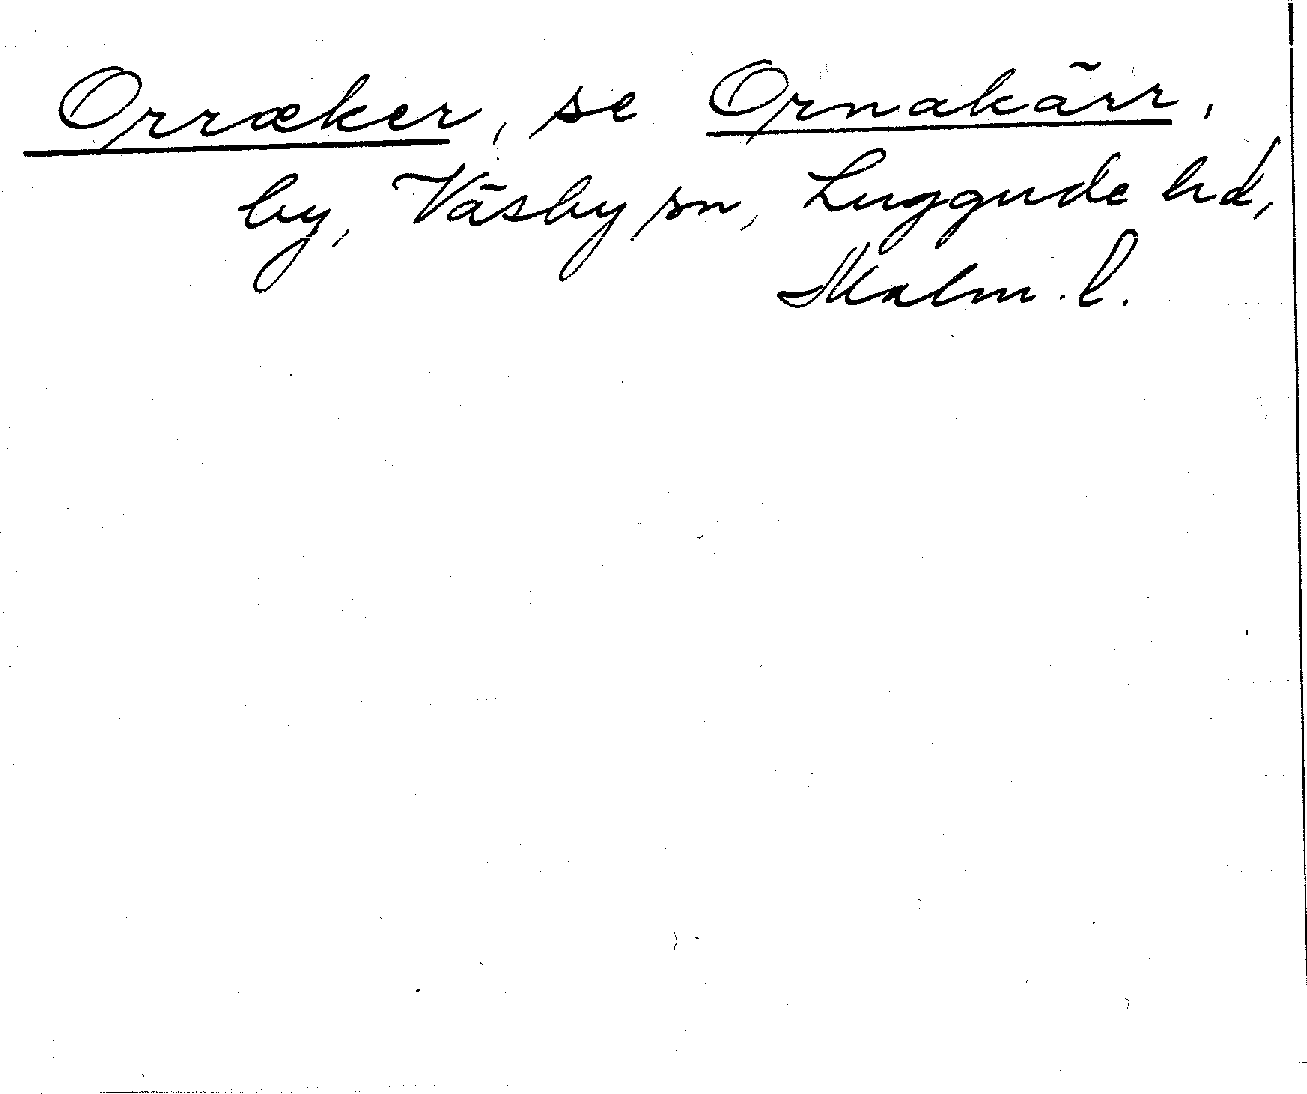 Orræker, se Ornakärr,
by, Väsby sn, Luggude hd,
Malm. l.